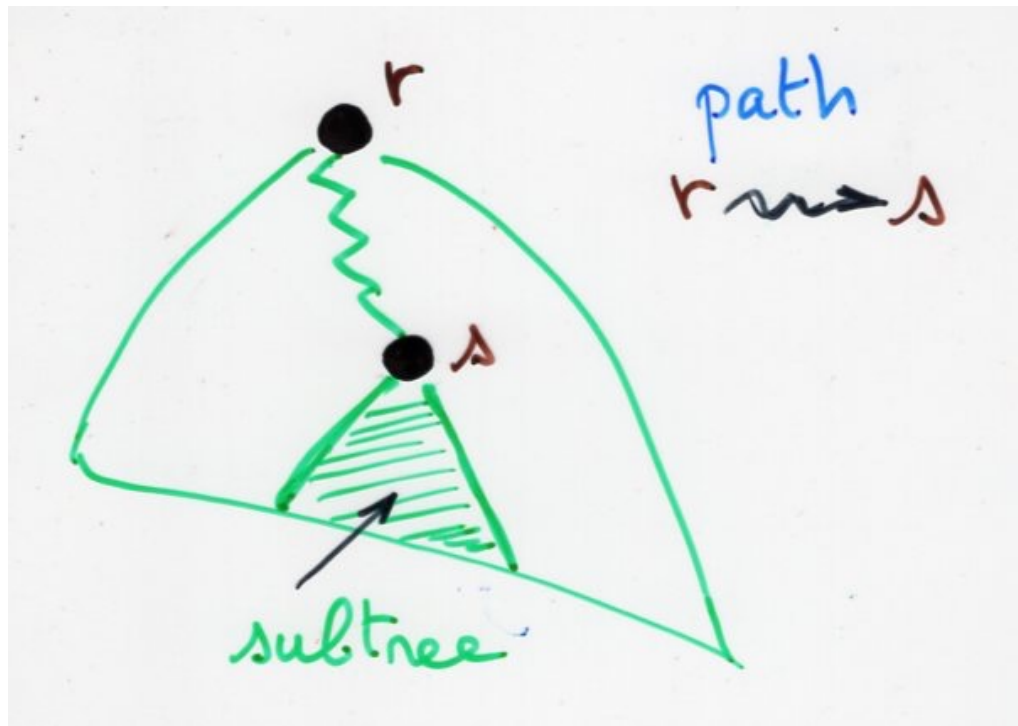 r
path
r ⇝ s
s
subtree